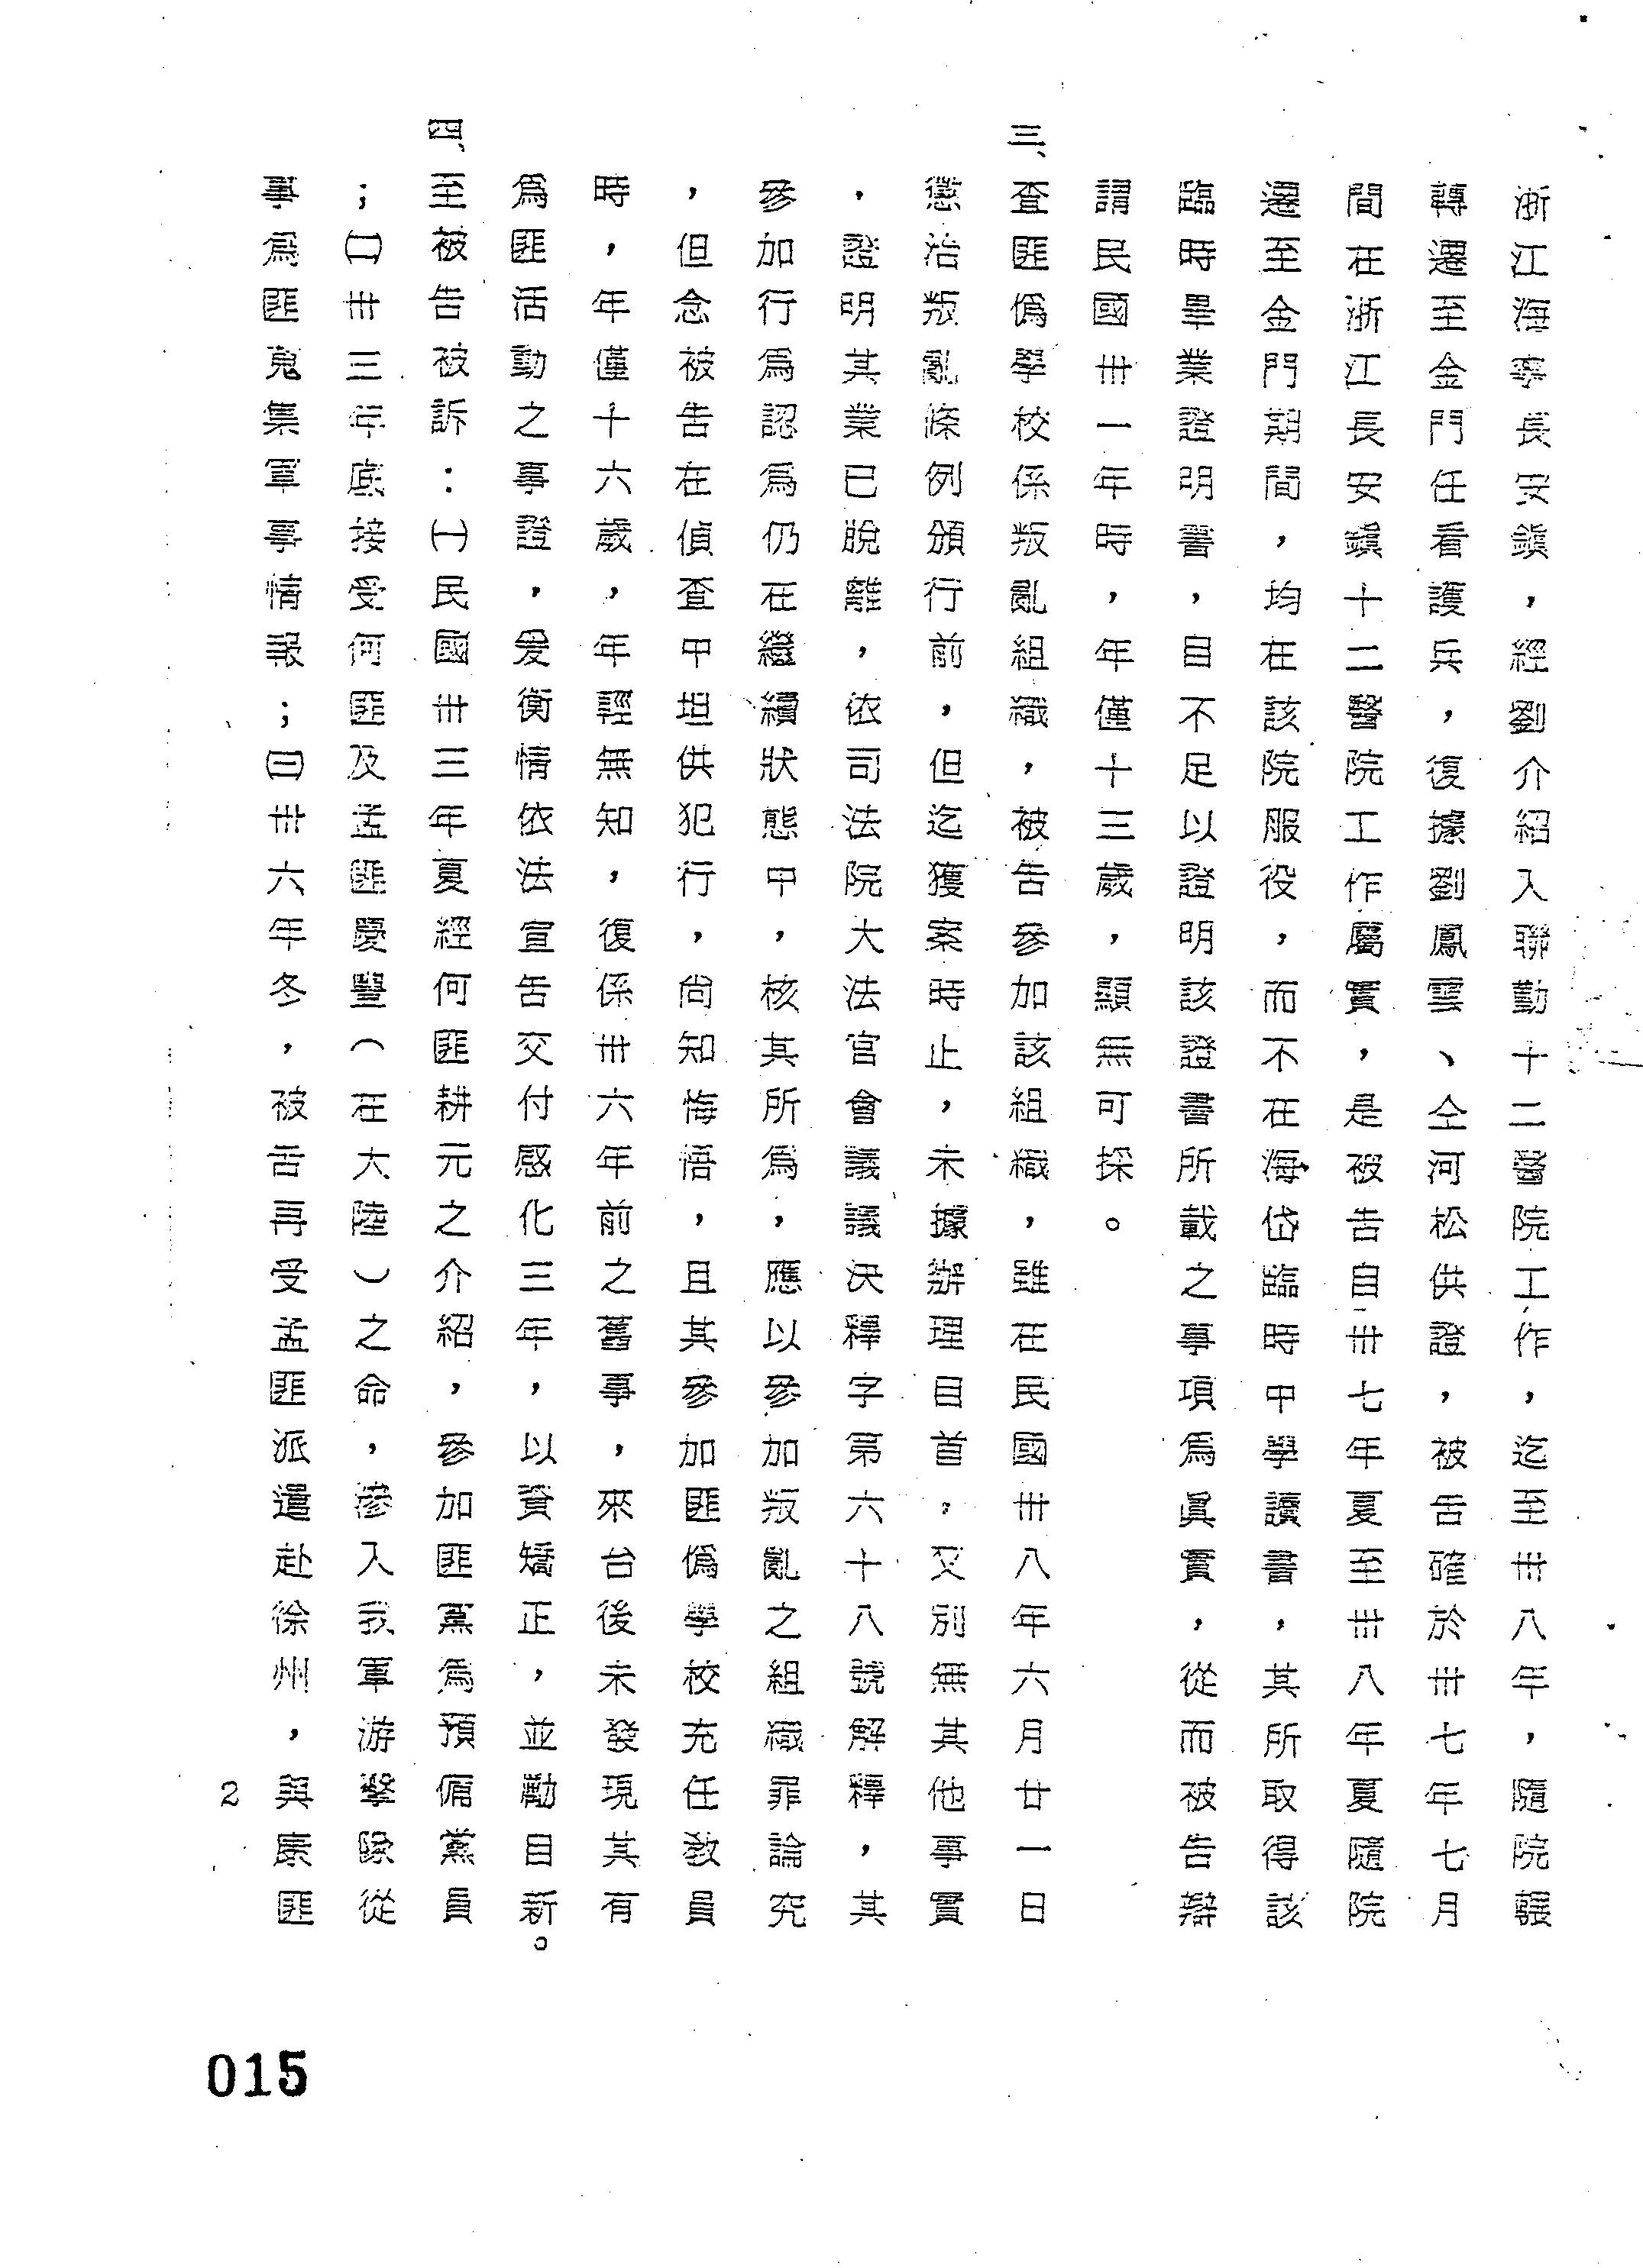 浙江海寧長安鎮，經劉介紹入聯勤十二醫院工作，迄至卅八年，隨院輾
轉遷至金門任看護兵，復據劉鳳雲、仝河松供證，被告確於卅七年七月
間在浙江長安鎮十二醫院工作屬實，是被告自卅七年夏至卅八年夏隨院
遷至金門期間，均在該院服役，而不在海岱臨時中學讀書，其所取得該
臨時畢業證明書，自不足以證明該證書所載之事項為眞實，從而被告辯
謂民國卅一年時，年僅十三歲，顯無可採。
三、查匪偽學校係叛亂組織，被告參加該組織，雖在民國卅八年六月廿一日
懲治叛亂條例頒行前，但迄獲案時止，未據辦理自首，又別無其他事實
，證明其業已脫離，依司法院大法官會議議決釋字第六十八號解釋，其
參加行為認為仍在繼續狀態中，核其所為，應以參加叛亂之組織罪論究
，但念被告在偵查中坦供犯行，尚知悔悟，且其參加匪偽學校充任教員
時，年僅十六歲，年輕無知，復係卅六年前之舊事，來台後未發現其有
為匪活動之事證，爰衡情依法宣告交付感化三年，以資矯正，並勵自新。
四、至被告被訴：㈠民國卅三年夏經何匪耕元之介紹，參加匪黨為預備黨員
；㈡卅三年底接受何匪及孟匪慶豐（在大陸）之命，滲入我軍游擊隊從
事為匪蒐集軍事情報；㈢卅六年冬，被告再受孟匪派遣赴徐州，與康匪
2
015